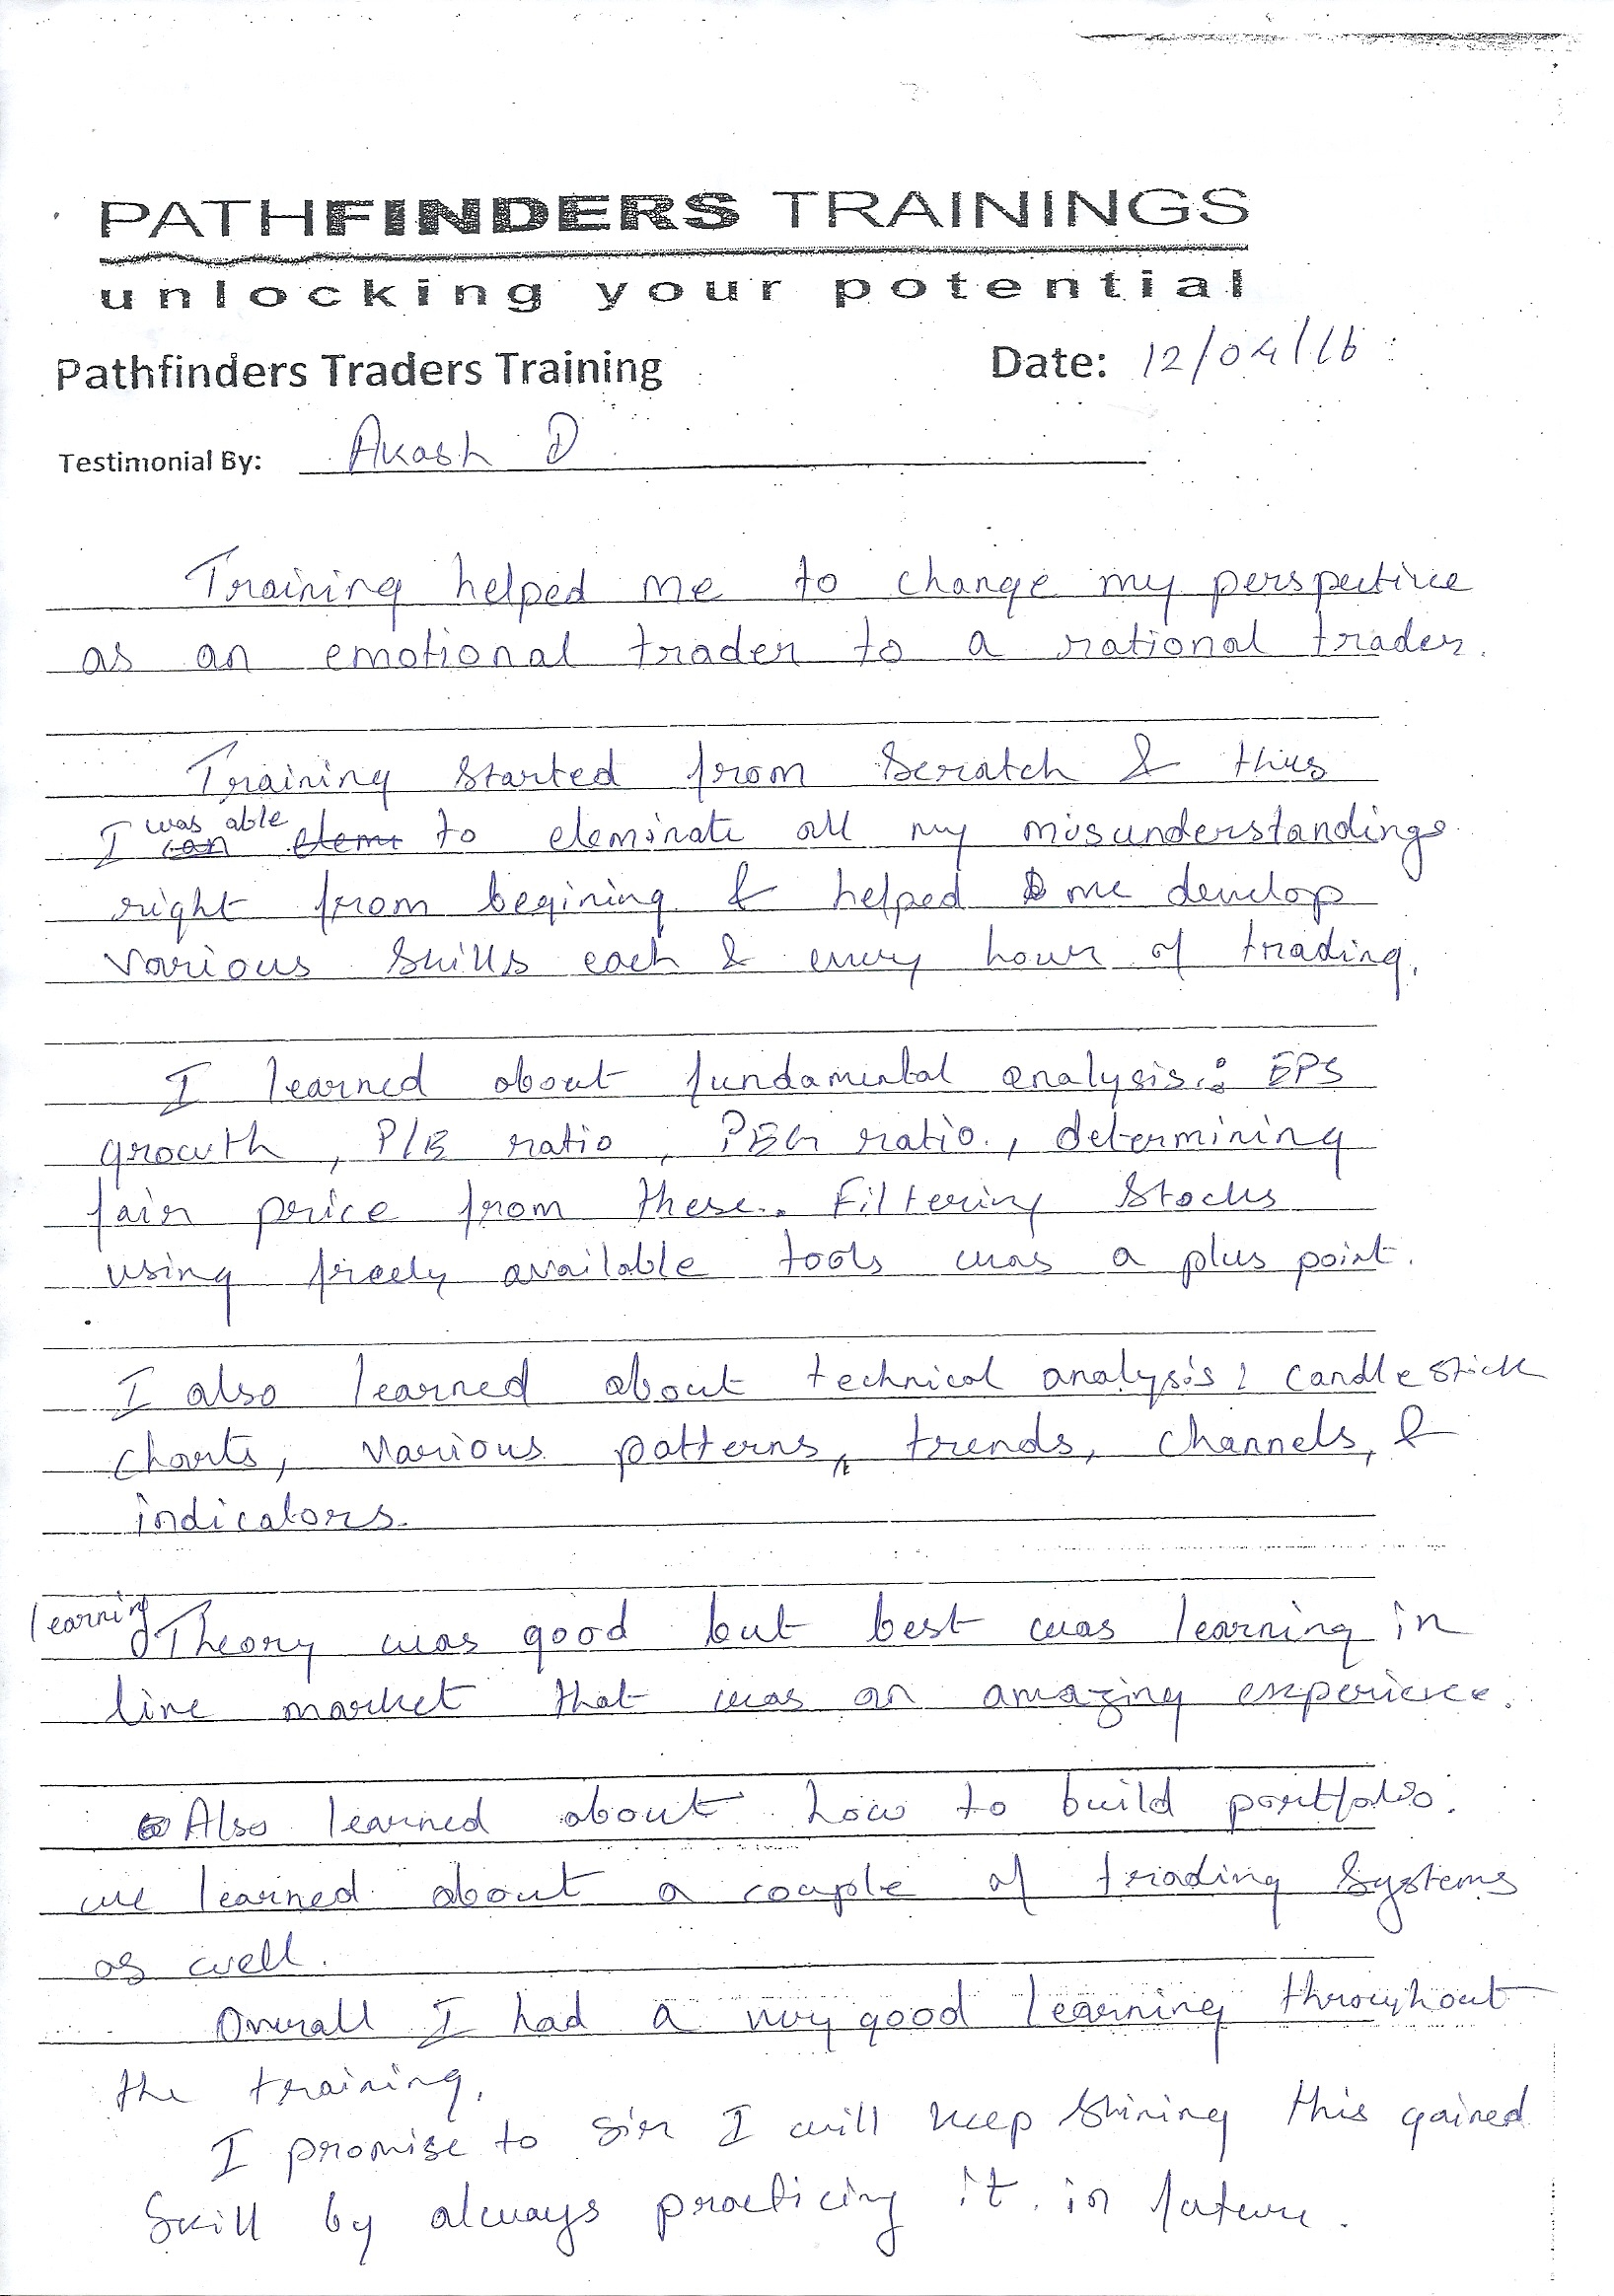 PATHFINDERS TRAININGS
unlocking your potential
Pathfinders Traders Training Date: 12/04/16
Testimonial By: Akash D
Training helped me to change my perspective
as an emotional trader to a rational trader.
Training started from Scratch & thus
I was able to eleminate all my misunderstandings
right from begining & helped me develop
various skills each & every hour of trading.
I learned about fundamental analysis: EPS
growth, P/E ratio, PEG ratio, determining
fair price from these. Filtering Stocks
using freely available tools was a plus point.
I also learned about technical analysis: candle stick
charts, various patterns, trends, channels, &
indicators.
learning Theory was good but best was learning in
live market that was an amazing experience.
Also learned about how to build portfolio.
we learned about a couple of trading Systems
as well.
Overall I had a very good learning throughout
the training.
I promise to sir I will keep shining this gained
Skill by always practicing it in future.